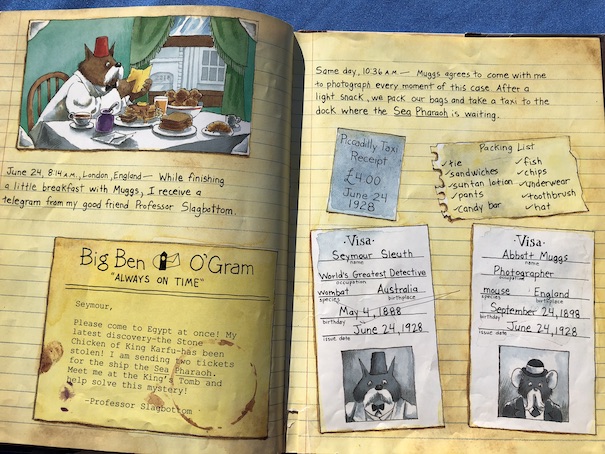 June 24, 8:14 A.M., London, England — While finishing
a little breakfast with Muggs, I receive a
telegram from my good friend Professor Slagbottom.
Big Ben O'Gram
"ALWAYS ON TIME"
Seymour,
Please come to Egypt at once! My
latest discovery-the Stone
Chicken of King Karfu-has been
stolen! I am sending two tickets
for the ship the Sea Pharaoh.
Meet me at the King's Tomb and
help solve this mystery!
-Professor Slagbottom
Same day, 10:36 A.M — Muggs agrees to come with me
to photograph every moment of this case. After a
light snack, we pack our bags and take a taxi to the
dock where the Sea Pharaoh is waiting.
Piccadilly Taxi
Receipt
£4.00
June 24
1928
Packing List
✓tie
✓sandwiches
✓suntan lotion
✓pants
✓candy bar
✓fish
✓chips
✓underwear
✓toothbrush
✓hat
·Visa·
Seymour Sleuth
name
World's Greatest Detective
occupation
wombat Australia
species birthplace
May 4, 1888
birthday
June 24, 1928
issue date
·Visa·
Abbott Muggs
name
Photographer
occupation
mouse England
species birthplace
September 24, 1898
birthday
June 24, 1928
issue date